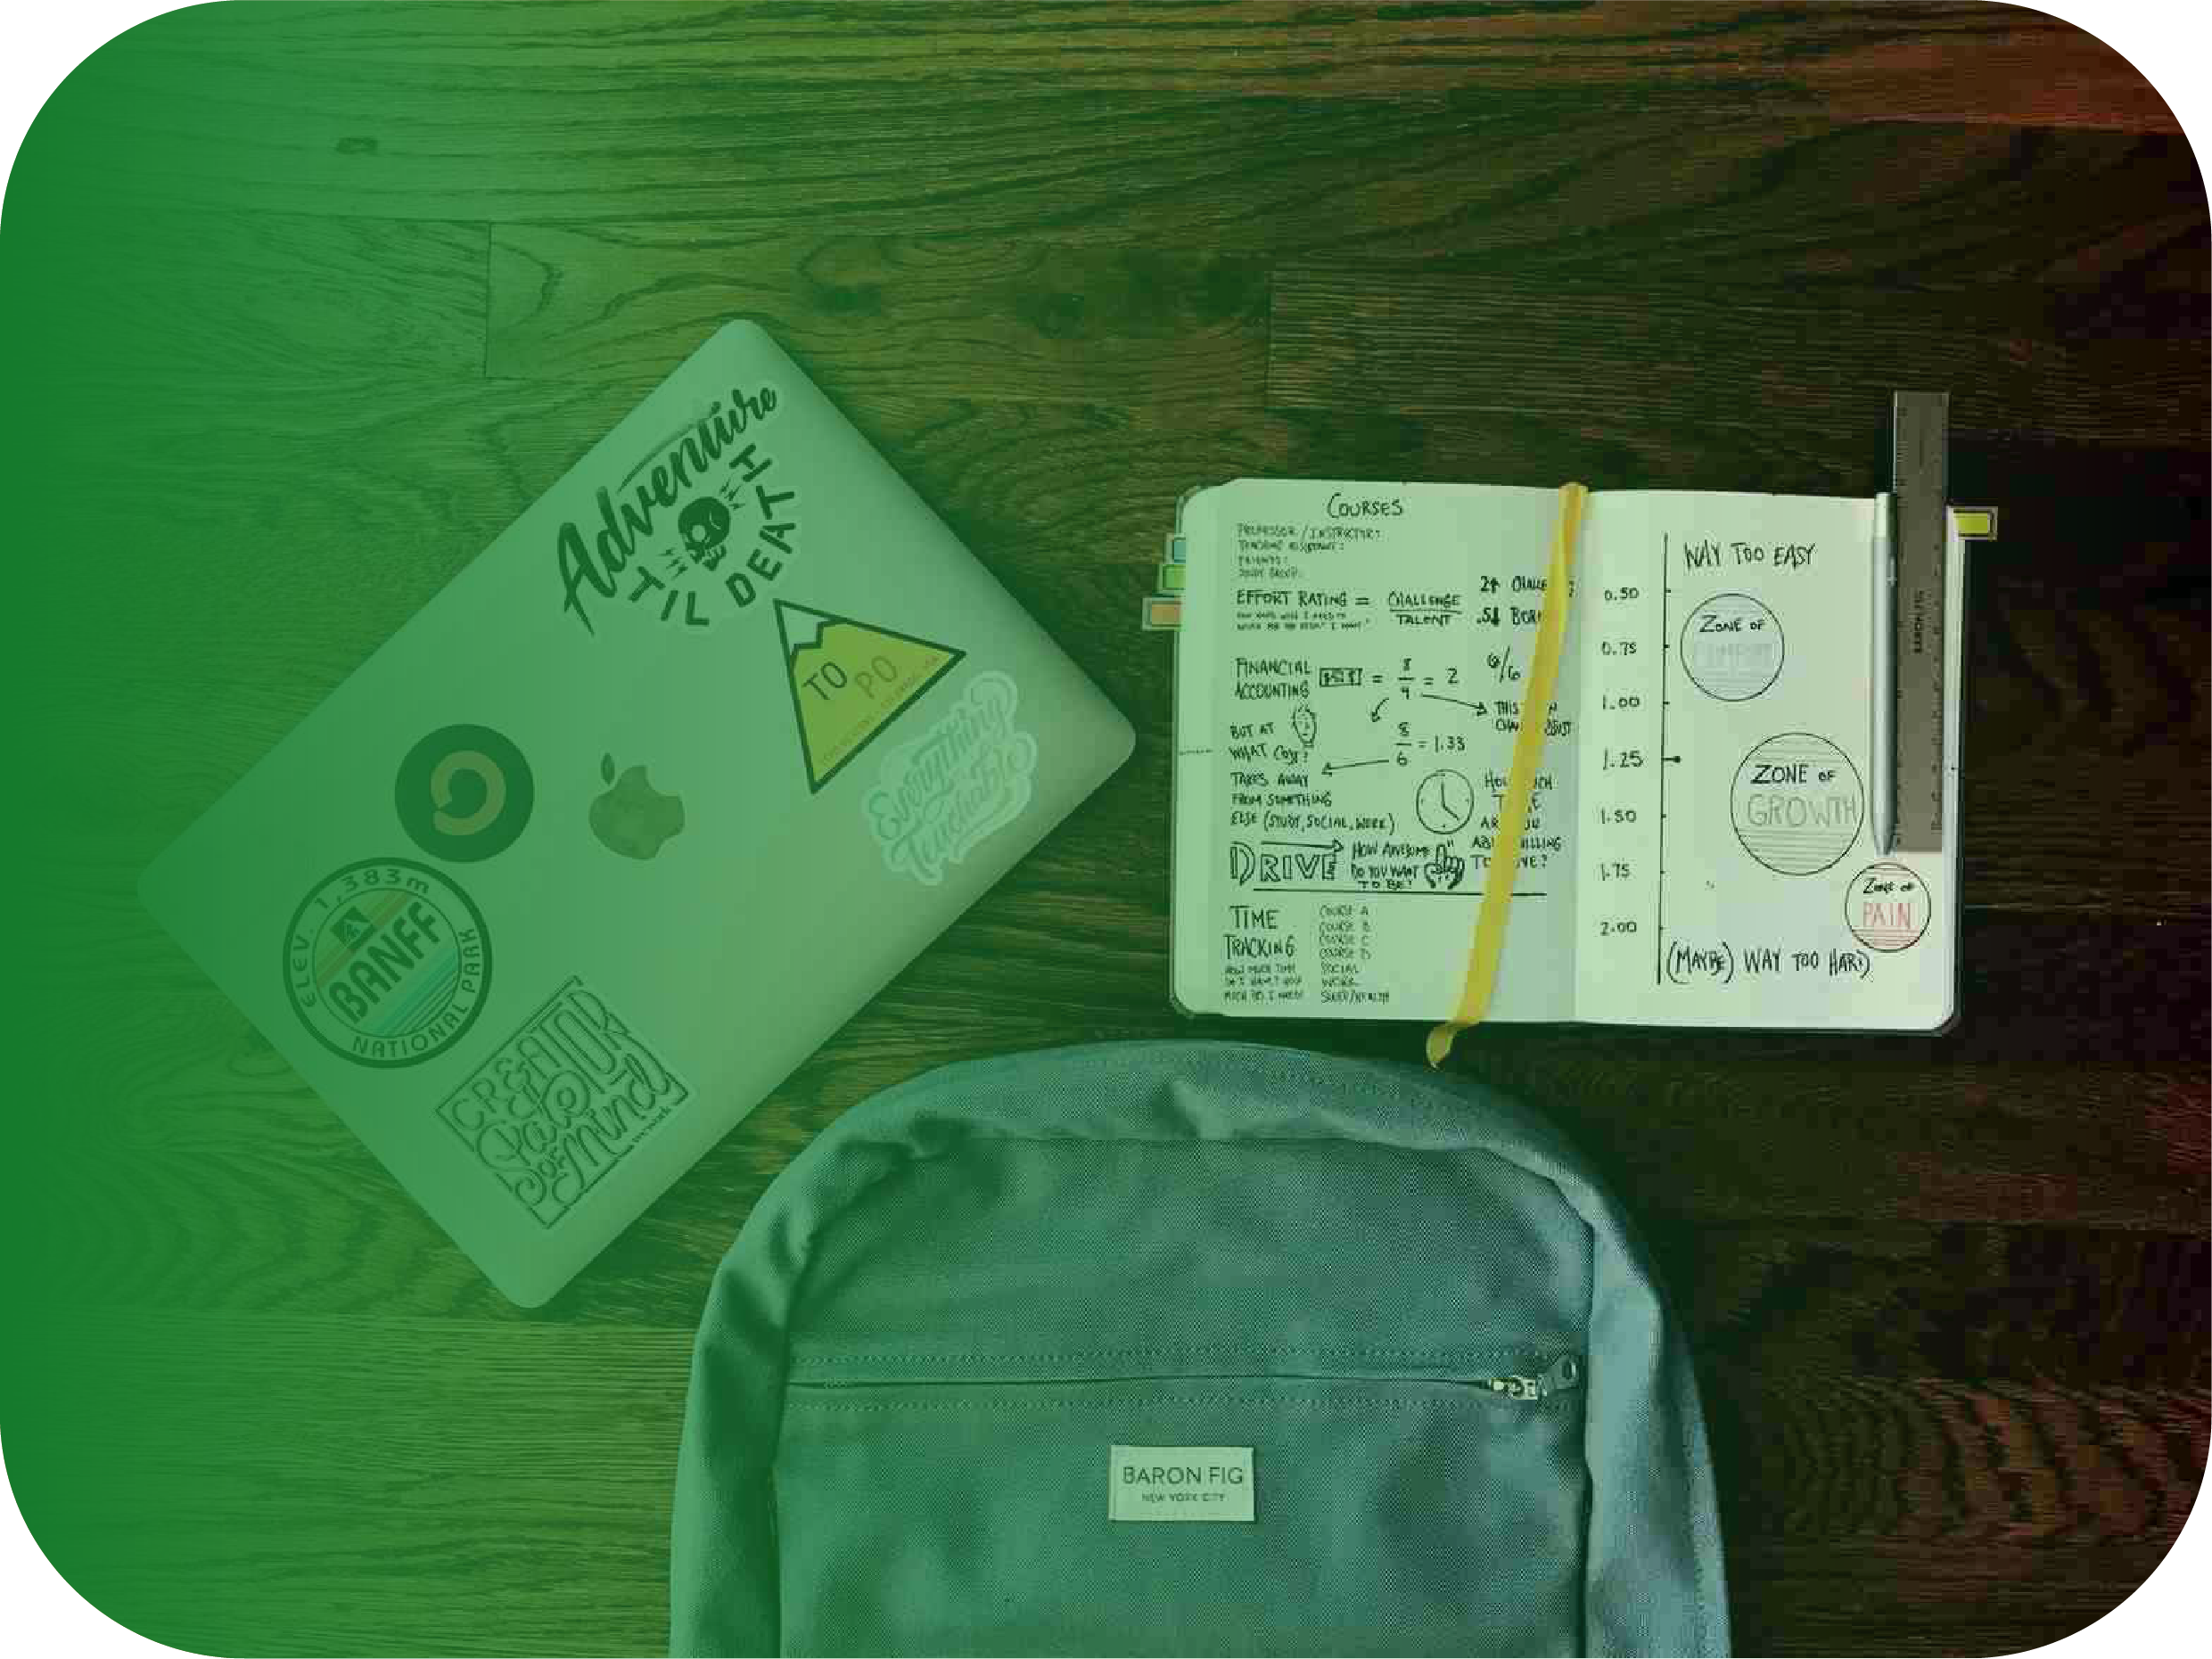 Adventure
TIL DEATH
TO PO
Everything
Teachable
ELEV. 1,383m
BANFF
NATIONAL PARK
CREATIVE
PEACE OF
Mind
COURSES
PROFESSOR / INSTRUCTOR:
TEACHING ASSISTANT:
STUDY GROUP:
EFFORT RATING = CHALLENGE
TALENT
2↑
.5↓
FINANCIAL
ACCOUNTING
= 8
4
= 2
6/6
BUT AT
WHAT COST?
8
6
= 1.33
THIS
TAKES AWAY
FROM SOMETHING
ELSE (STUDY, SOCIAL, WORK)
DRIVE
HOW AWESOME
DO YOU WANT
TO BE?
TIME
TRACKING
COURSE A
COURSE B
COURSE C
COURSE D
SOCIAL
WORK
SLEEP/HEALTH
WAY TOO EASY
0.50
0.75
1.00
1.25
1.50
1.75
2.00
ZONE OF
ZONE OF
GROWTH
ZONE OF
PAIN
(MAYBE) WAY TOO HARD
BARON FIG
BARON FIG
NEW YORK CITY